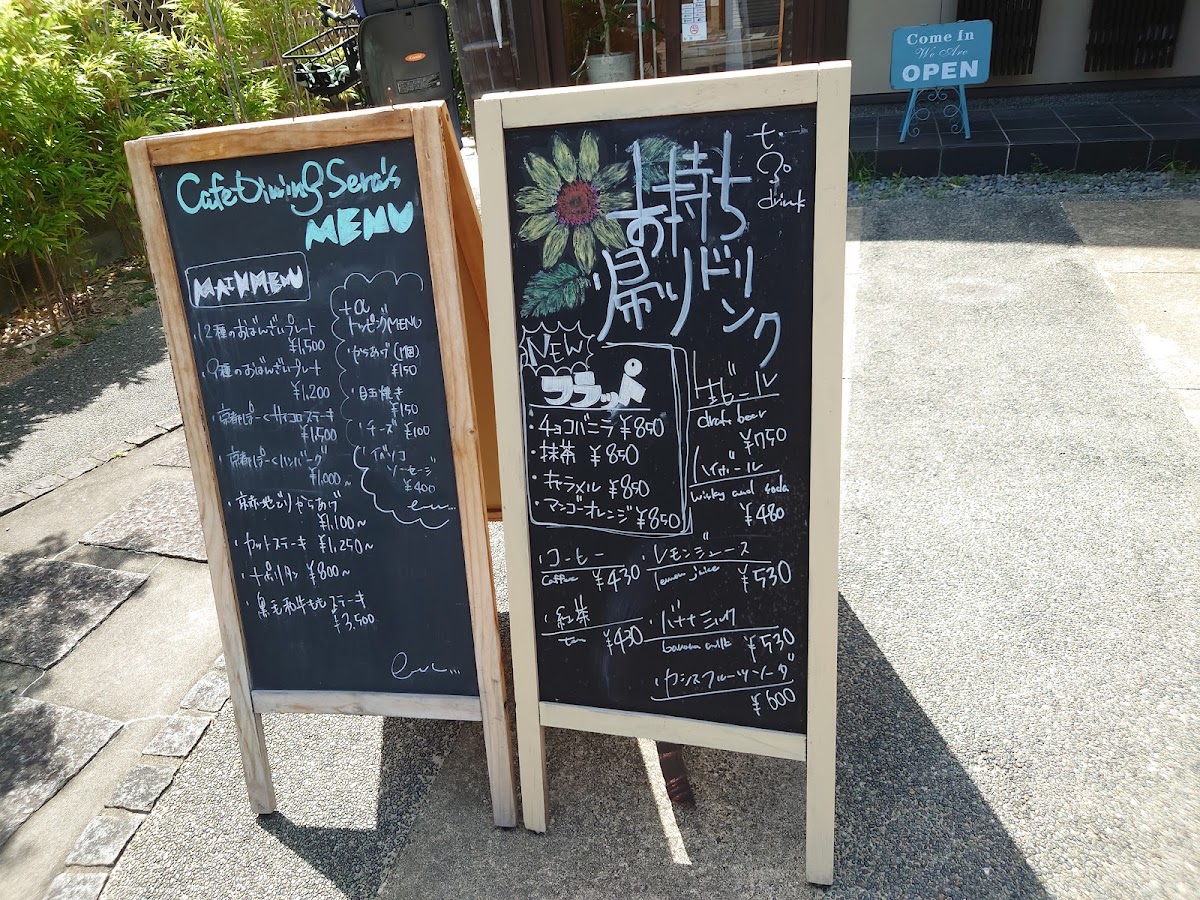 Come In
We Are
OPEN
Cafe Dining Sera's
MENU
MAIN MENU
・12種のおばんざいプレート
¥1,500
・9種のおばんざいプレート
¥1,200
・京都ぽーくサイコロステーキ
¥1,500
・京都ぽーくハンバーグ
¥1,000〜
・京都地どりからあげ
¥1,100〜
・カットステーキ ¥1,250〜
・ナポリタン ¥800〜
・黒毛和牛ももステーキ
¥3,500
etc...
+α
トッピングMENU
・からあげ(1個)
¥150
・目玉焼き
¥150
・チーズ ¥100
ソーセージ
¥400
etc...
to
go
drink
お持ち
帰りドリンク
NEW
フラッペ
・チョコバニラ ¥850
・抹茶 ¥850
・キャラメル ¥850
・マンゴーオレンジ ¥850
・生ビール
draft beer
¥750
・ハイボール
wisky and soda
¥480
・コーヒー
coffee ¥430
・レモンジュース
lemon juice ¥530
・紅茶
tea ¥430
・バナナミルク
banana milk ¥530
・カシスフルーツソーダ
¥600